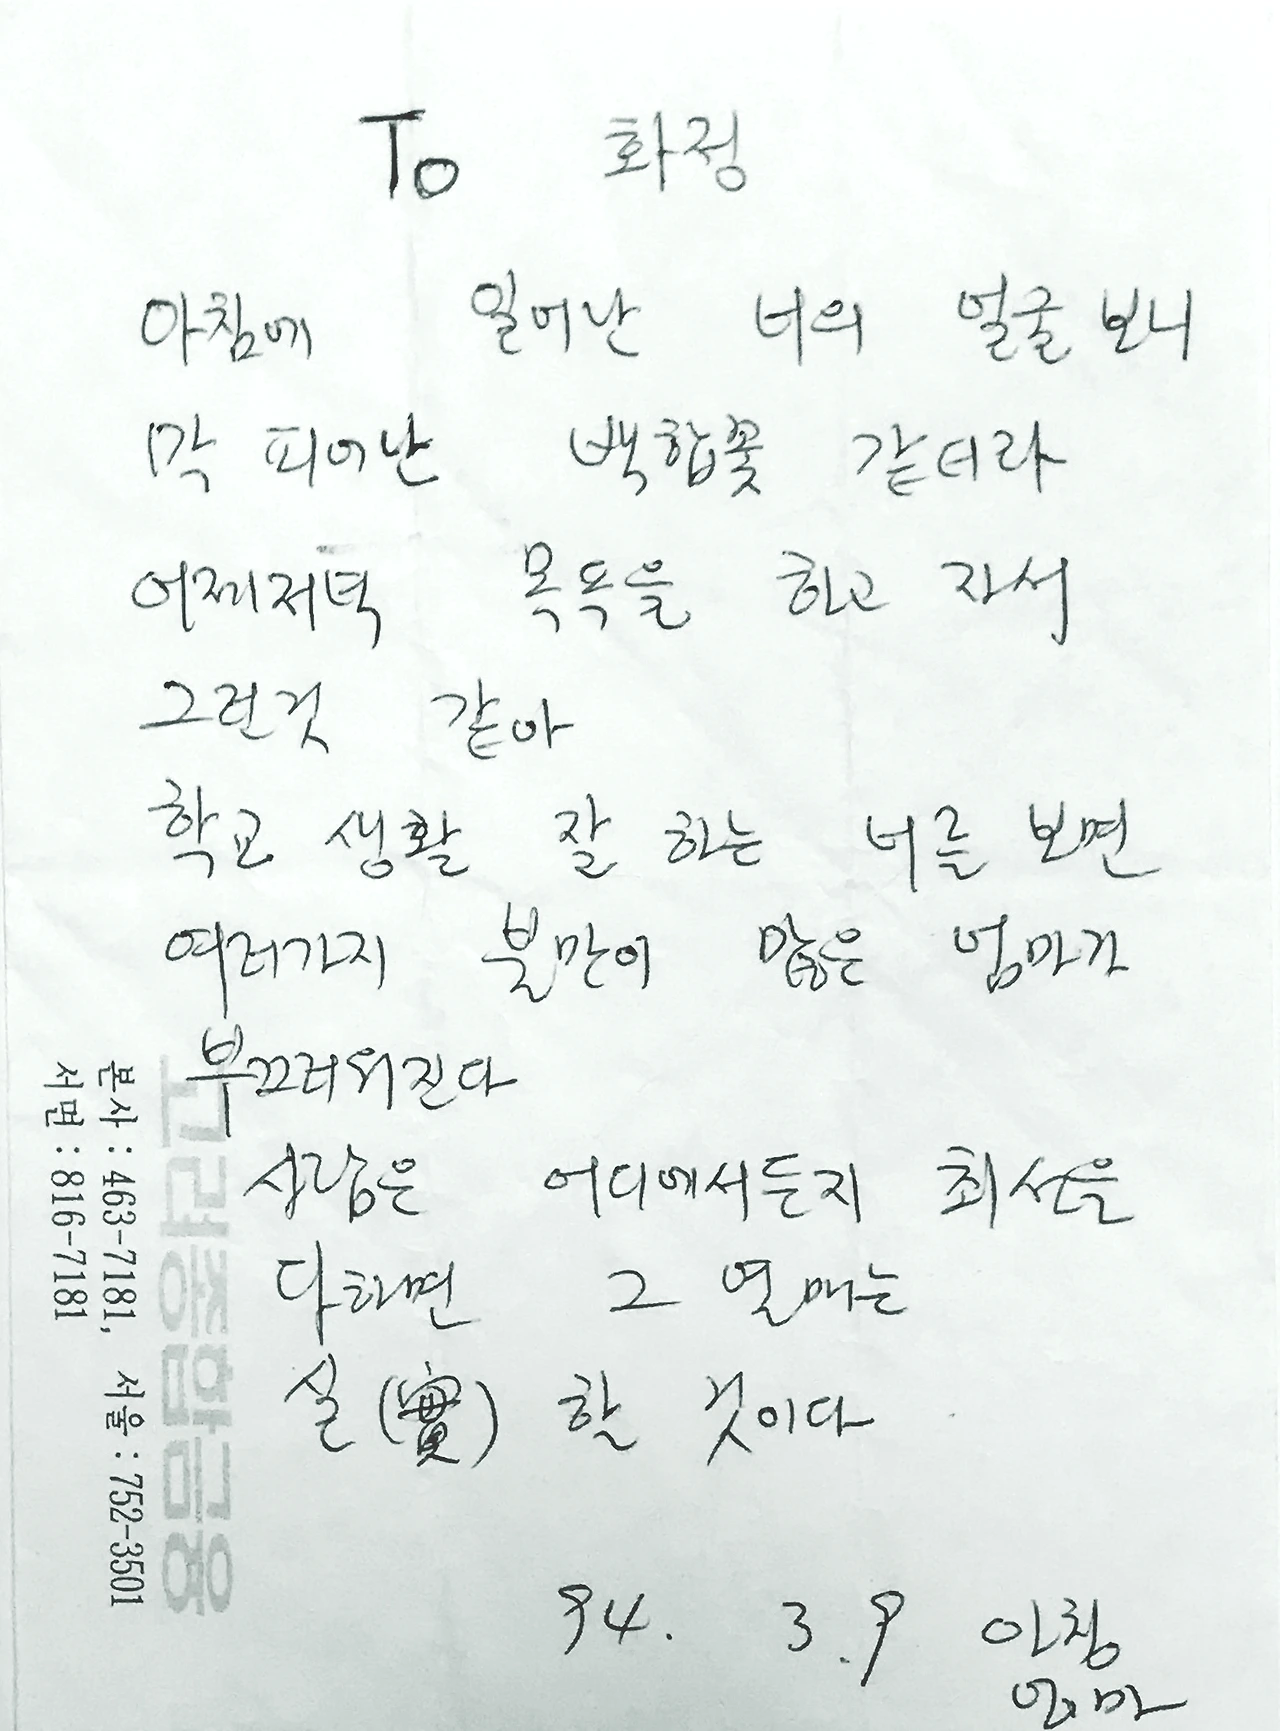 To 화정
아침에 일어난 너의 얼굴 보니
막 피어난 백합꽃 같더라
어제저녁 목욕을 하고 자서
그런것 같아
학교 생활 잘 하는 너를 보면
여러가지 불만이 많은 엄마가
부끄러워진다
사람은 어디에서든지 최선을
다하면 그 열매는
실(實) 할 것이다
94. 3.9 아침
엄마
고려종합금융
본사:463-7181, 서울:752-3501
서면:816-7181